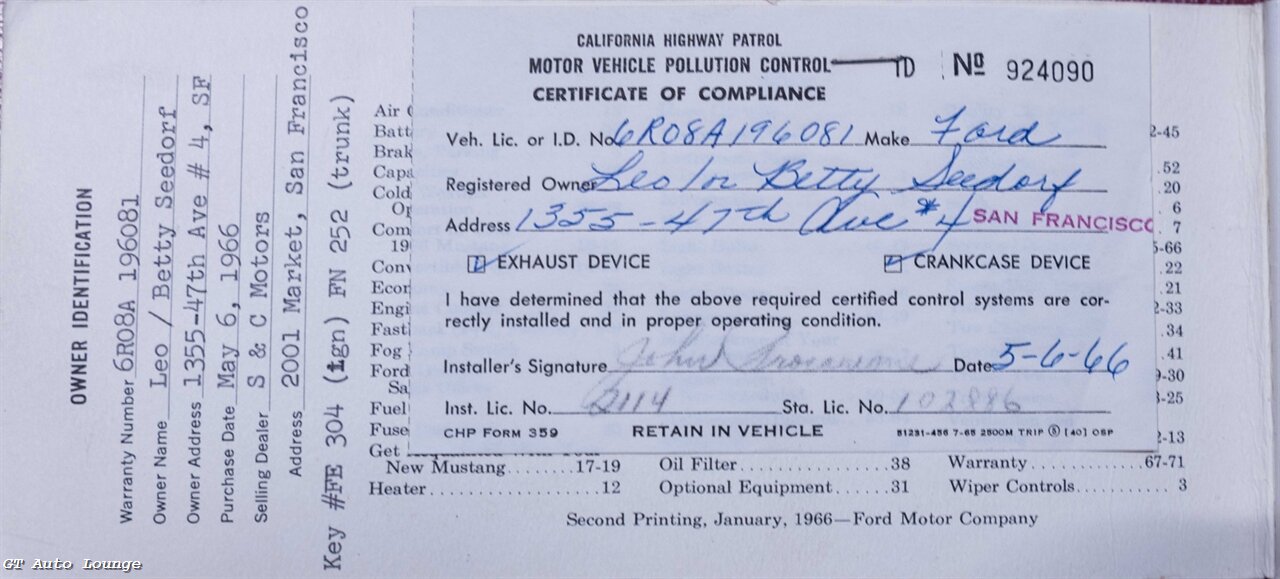 OWNER IDENTIFICATION
Warranty Number 6R08A 196081
Owner Name Leo / Betty Seedorf
Owner Address 1355-47th Ave # 4, SF
Purchase Date May 6, 1966
Selling Dealer S & C Motors
Address 2001 Market, San Francisco
Key #FE 304 (ign) FN 252 (trunk)
CALIFORNIA HIGHWAY PATROL
MOTOR VEHICLE POLLUTION CONTROL TD № 924090
CERTIFICATE OF COMPLIANCE
Veh. Lic. or I.D. No. 6R08A196081 Make Ford
Registered Owner Leo/or Betty Seedorf
Address 1355-47th Ave #4 SAN FRANCISCO
EXHAUST DEVICE CRANKCASE DEVICE
I have determined that the above required certified control systems are cor-
rectly installed and in proper operating condition.
Installer's Signature John Date 5-6-66
Inst. Lic. No. 2114 Sta. Lic. No. 102886
CHP FORM 359 RETAIN IN VEHICLE 51231-456 7-65 2500M TRIP (5) [40] OSP
Air
Batt
Brak
Capa
Cold
Op
Com
19
Conv
Econ
Engi
Fast
Fog
Ford
Sa
Fuel
Fuse
Get
2-45
.52
.20
6
7
5-66
.22
.21
2-33
.34
.41
9-30
3-25
2-13
New Mustang........17-19 Oil Filter....................38 Warranty..............67-71
Heater.....................12 Optional Equipment......31 Wiper Controls............3
Second Printing, January, 1966—Ford Motor Company
GT Auto Lounge